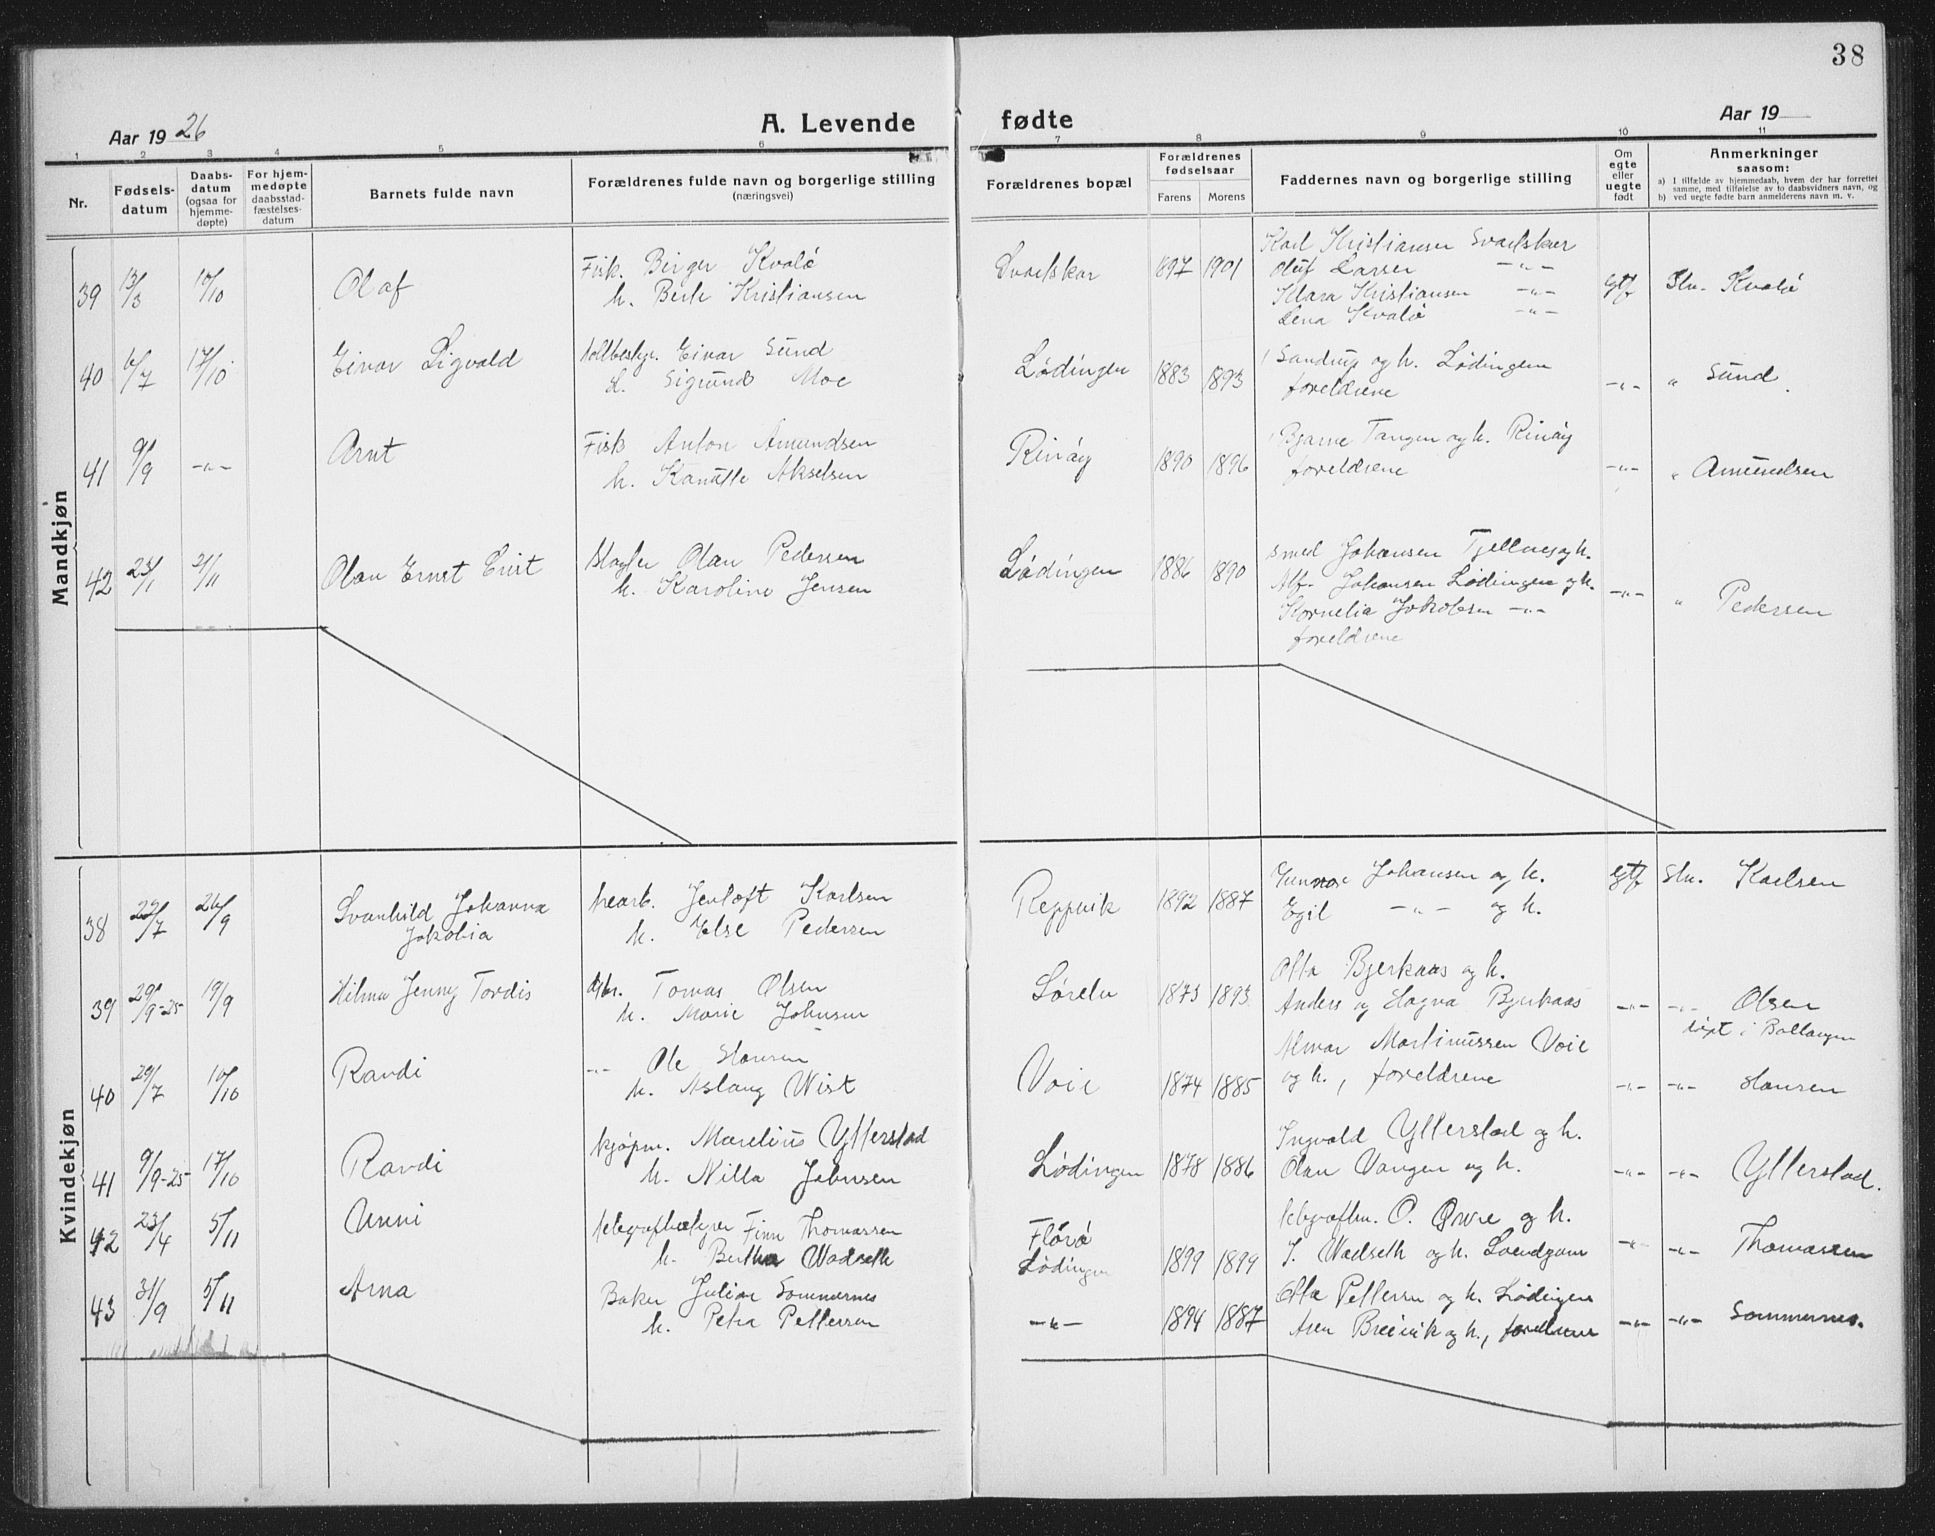 38
Aar 1926
A. Levende fødte
Aar 19
1 2 3 4 5 6 7 8 9 10 11
Nr.
Fødsels-
datum
Daabs-
datum
(ogsaa for
hjemme-
døpte)
For hjem-
medøpte
daabsstad-
fæstelses-
datum
Barnets fulde navn
Forældrenes fulde navn og borgerlige stilling
(næringsvei)
Forældrenes bopæl
Forældrenes
fødselsaar
Farens Morens
Faddernes navn og borgerlige stilling
Om
egte
eller
uegte
født
Anmerkninger
saasom:
a) I tilfælde av hjemmedaab, hvem der har forrettet
samme, med tilføielse av to daabsvidners navn, og
b) ved uegte fødte barn anmelderens navn m. v.
Mandkjøn
39 13/3 10/10 Olaf
Fisk. Birger Kvalø
h. Berle Kristiansen
Svartskar 1897 1901
Karl Kristiansen Svartskar
Oluf Larsen -"-
Klara Kristiansen -"-
Lena Kvalø -"-
Gtf Stn. Kvalø
40 6/7 17/10 Einar Sigvald
Einar Sund
h. Sigrund Moe
Lødingen 1883 1893
Sandrup og h. Lødingen
foreldrene
-"- " Sund
41 9/9 -"- Arnt
Fisk Anton Amundsen
h. Kanutte Akselsen
Rinøy 1890 1896
Bjarne Tangen og h. Rinøy
foreldrene
-"- " Amundsen
42 23/1 21/11 Olan Ernst Enst
Olan Pedersen
h. Karoline Jensen
Lødingen 1886 1890
smed Johansen Tjellnes og h.
Alf. Johansen Lødingen og h.
Kornelia Jakobsen -"-
foreldrene
-"- " Pedersen
Kvindekjøn
38 22/7 26/9 Svanhild Johanna
Jakobia
Jenloft Karlsen
h. Else Pedersen
Reppvik 1892 1887
Gunnar Johansen og h.
Egil -"- og h.
Gtf Stn. Karlsen
39 29/9-25 19/9 Hilma Jenny Tordis
Gbr. Tomas Olsen
h. Marie Johnsen
Sørelv 1873 1893
Otto Bjerkaas og h.
Anders og Hagna Bjerkaas
-"- -"- Olsen
døpt i Ballangen
40 29/7 10/10 Randi
-"- Ole Hansen
h. Aslaug Wist
Voie 1874 1885
Almar Martinussen Voie
og h., foreldrene
-"- -"- Hansen
41 9/9-25 17/10 Randi
kjøpm. Marelius Ytterstad
h. Nilla Johnsen
Lødingen 1878 1886
Ingvald Ytterstad og h.
Olan Vangen og h.
-"- -"- Ytterstad.
42 23/4 5/11 Unni
telegrafbestyrer Finn Thomassen
h. Bertha Wadseth
Florø
Lødingen 1899 1899
telegrafbu. O. Øvre og h.
J. Wadseth og h.
-"- -"- Thomassen
43 31/9 5/11 Arna
Baker Julian Sommernes
h. Petra Pettersen
-"- 1894 1887
Otto Pettersen og h. Lødingen
Aren Breivik og h., foreldrene
-"- -"- Sommernes.